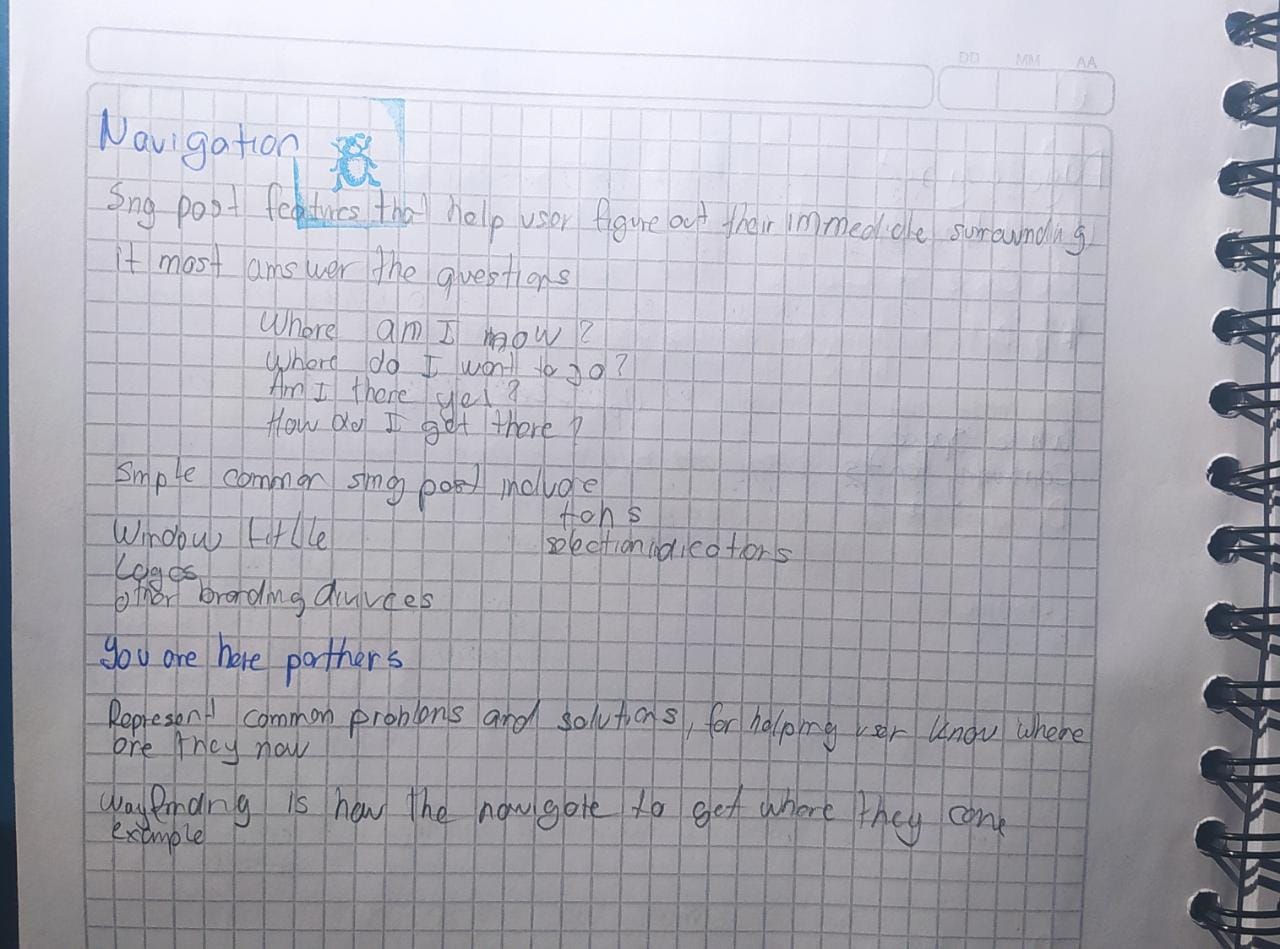 DD MM AA
Navigation
Sng post features that help user figure out their immediate surrounding
it most amswer the questions
Where am I now?
Where do I want to go?
Am I there yet?
How do I get there?
Smple common smg post include
tans
Window tittle
selection idicators
Logos
other branding divices
you are here parthers
Represent common problems and solutions, for helping user know where
are they now
wayfinding is how the navigate to get where they come
example